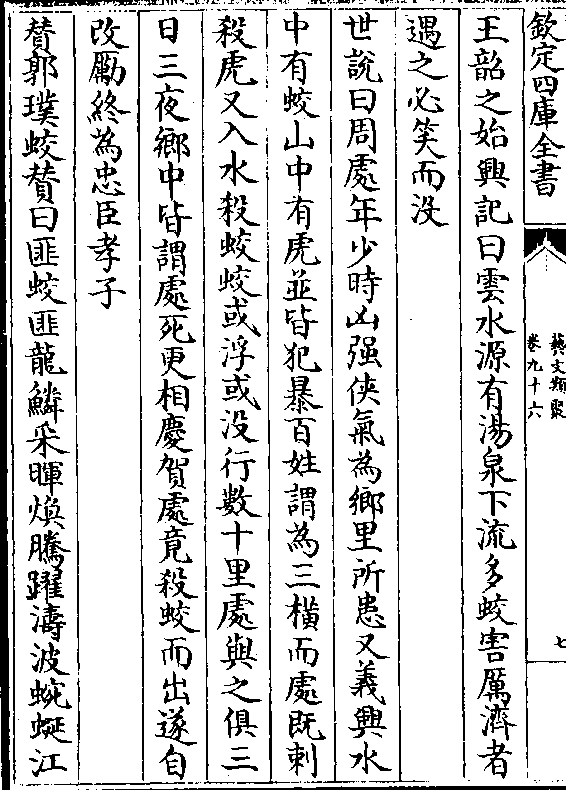 欽定四庫全書
藝文類聚
卷九十六
七
王韶之始興記曰雲水源有湯泉下流多蛟害厲濟者
遇之必笑而没
世說曰周處年少時凶强俠氣為鄉里所患又義興水
中有蛟山中有虎並皆犯暴百姓謂為三橫而處既刺
殺虎又入水殺蛟蛟或浮或没行數十里處與之俱三
日三夜鄉中皆謂處死更相慶賀處竟殺蛟而出遂自
改勵終為忠臣孝子
賛郭璞蛟賛曰匪蛟匪龍鱗采暉煥騰躍濤波蜿蜒江